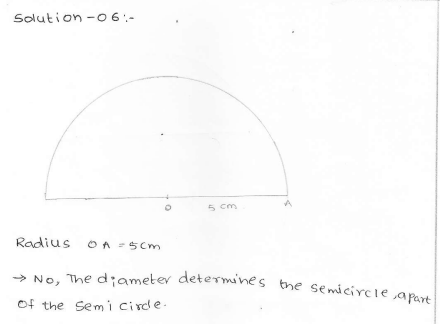 Solution-06:-
O 5 cm A
Radius OA = 5cm
→ No, The diameter determines the semicircle, apart
of the Semi circle.